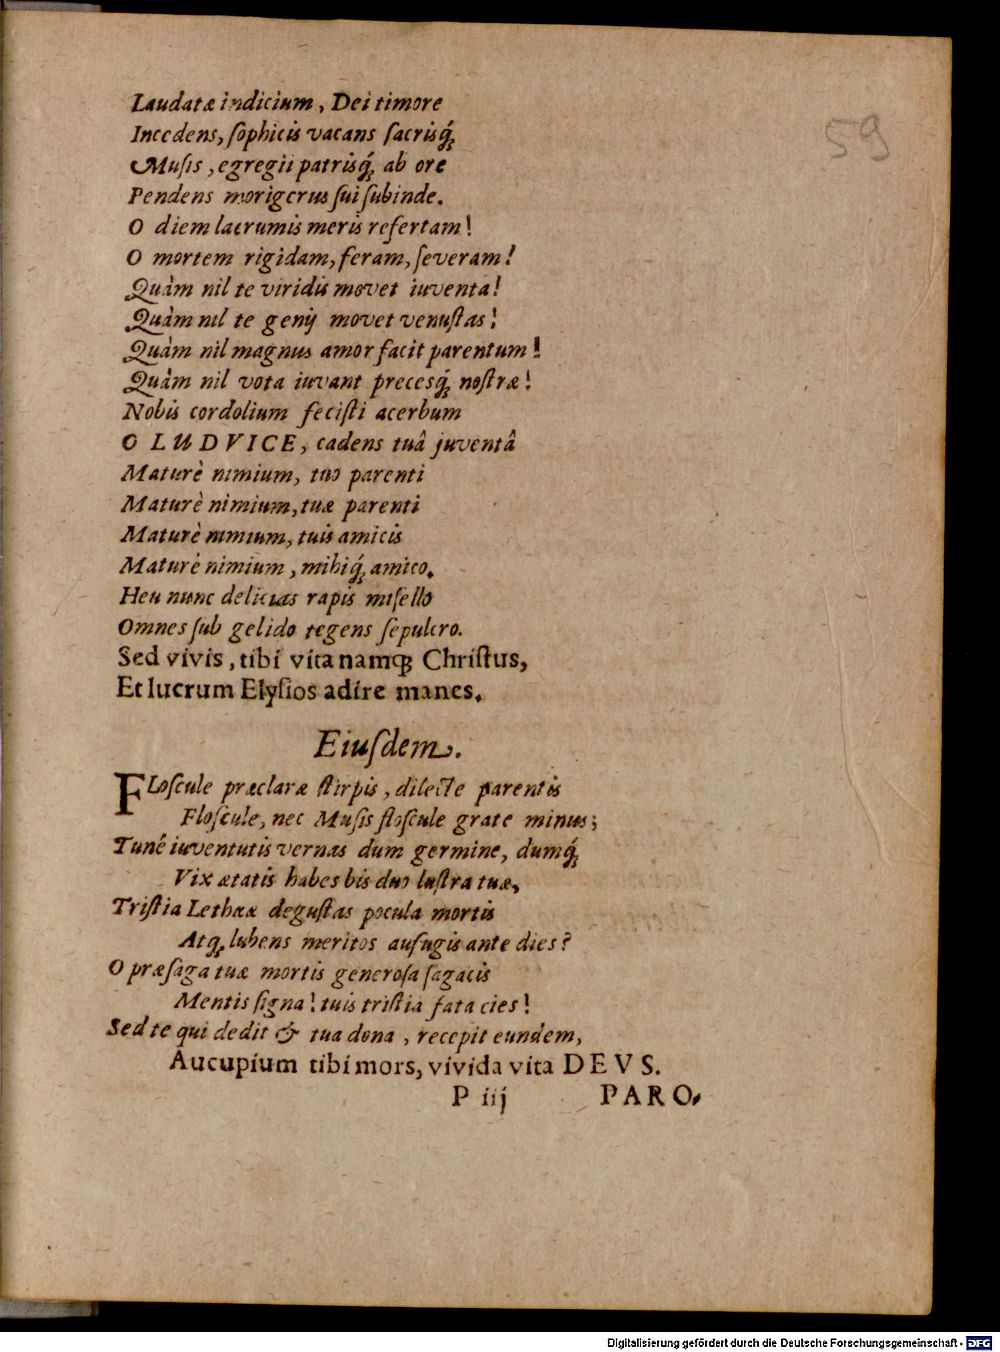 59
Laudatæ indicium, Dei timore
Incedens, ſophicis vacans ſacrisq́;
Muſis, egregii patrisq́; ab ore
Pendens morigerus ſui ſubinde.
O diem lacrumis meris refertam!
O mortem rigidam, feram, ſeveram!
Quàm nil te viridis movet iuventa!
Quàm nil te genij movet venuſtas!
Quàm nil magnus amor facit parentum!
Quàm nil vota iuvant precesq́; noſtræ!
Nobis cordolium feciſti acerbum
O LUDVICE, cadens tuâ juventâ
Maturè nimium, tuo parenti
Maturè nimium, tuæ parenti
Maturè nimium, tuis amicis
Maturè nimium, mihiq́; amico.
Heu nunc delicias rapis miſello
Omnes ſub gelido tegens ſepulcro.
Sed vivis, tibi vita namq; Chriſtus,
Et lucrum Elyſios adire manes.
Eiuſdem.
FLoſcule præclaræ ſtirpis, dilecte parentis
Floſcule, nec Muſis floſcule grate minus;
Tuné iuventutis vernas dum germine, dumq́;
Vix ætatis habes bis duo luſtra tuæ,
Triſtia Lethææ deguſtas pocula mortis
Atq; lubens meritos aufugis ante dies?
O præſaga tuæ mortis generoſa ſagacis
Mentis ſigna! tuis triſtia fata cies!
Sed te qui dedit & tua dona, recepit eundem,
Aucupium tibi mors, vivida vita DEVS.
P iij PARO.
Digitalisierung gefördert durch die Deutsche Forschungsgemeinschaft - DFG